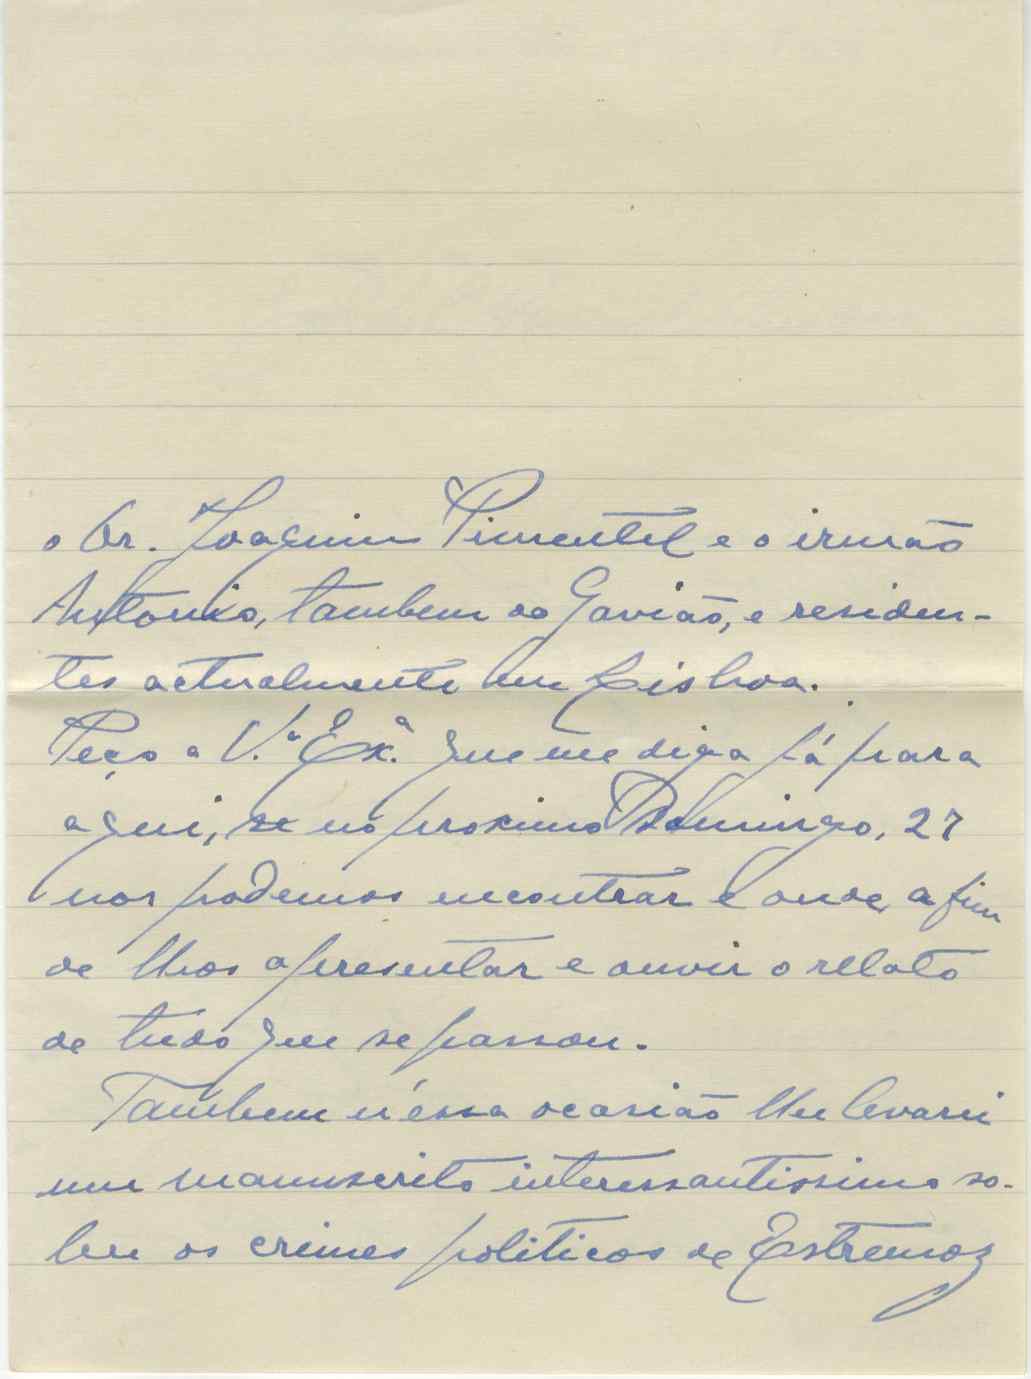 o Dr. Joaquim Pimentel e o irmão
Antonio, tambem do Gavião, e residen-
tes actualmente em Lisboa.
Peço a V.ª Exª. que me diga já para
aqui, se no proximo Domingo, 27
nos podemos encontrar e onde, a fim
de lhos apresentar e ouvir o relato
de tudo que se passou.
Tambem n'essa ocasião lhe levarei
um manuscrito interessantissimo so-
bre os crimes politicos de Estremoz